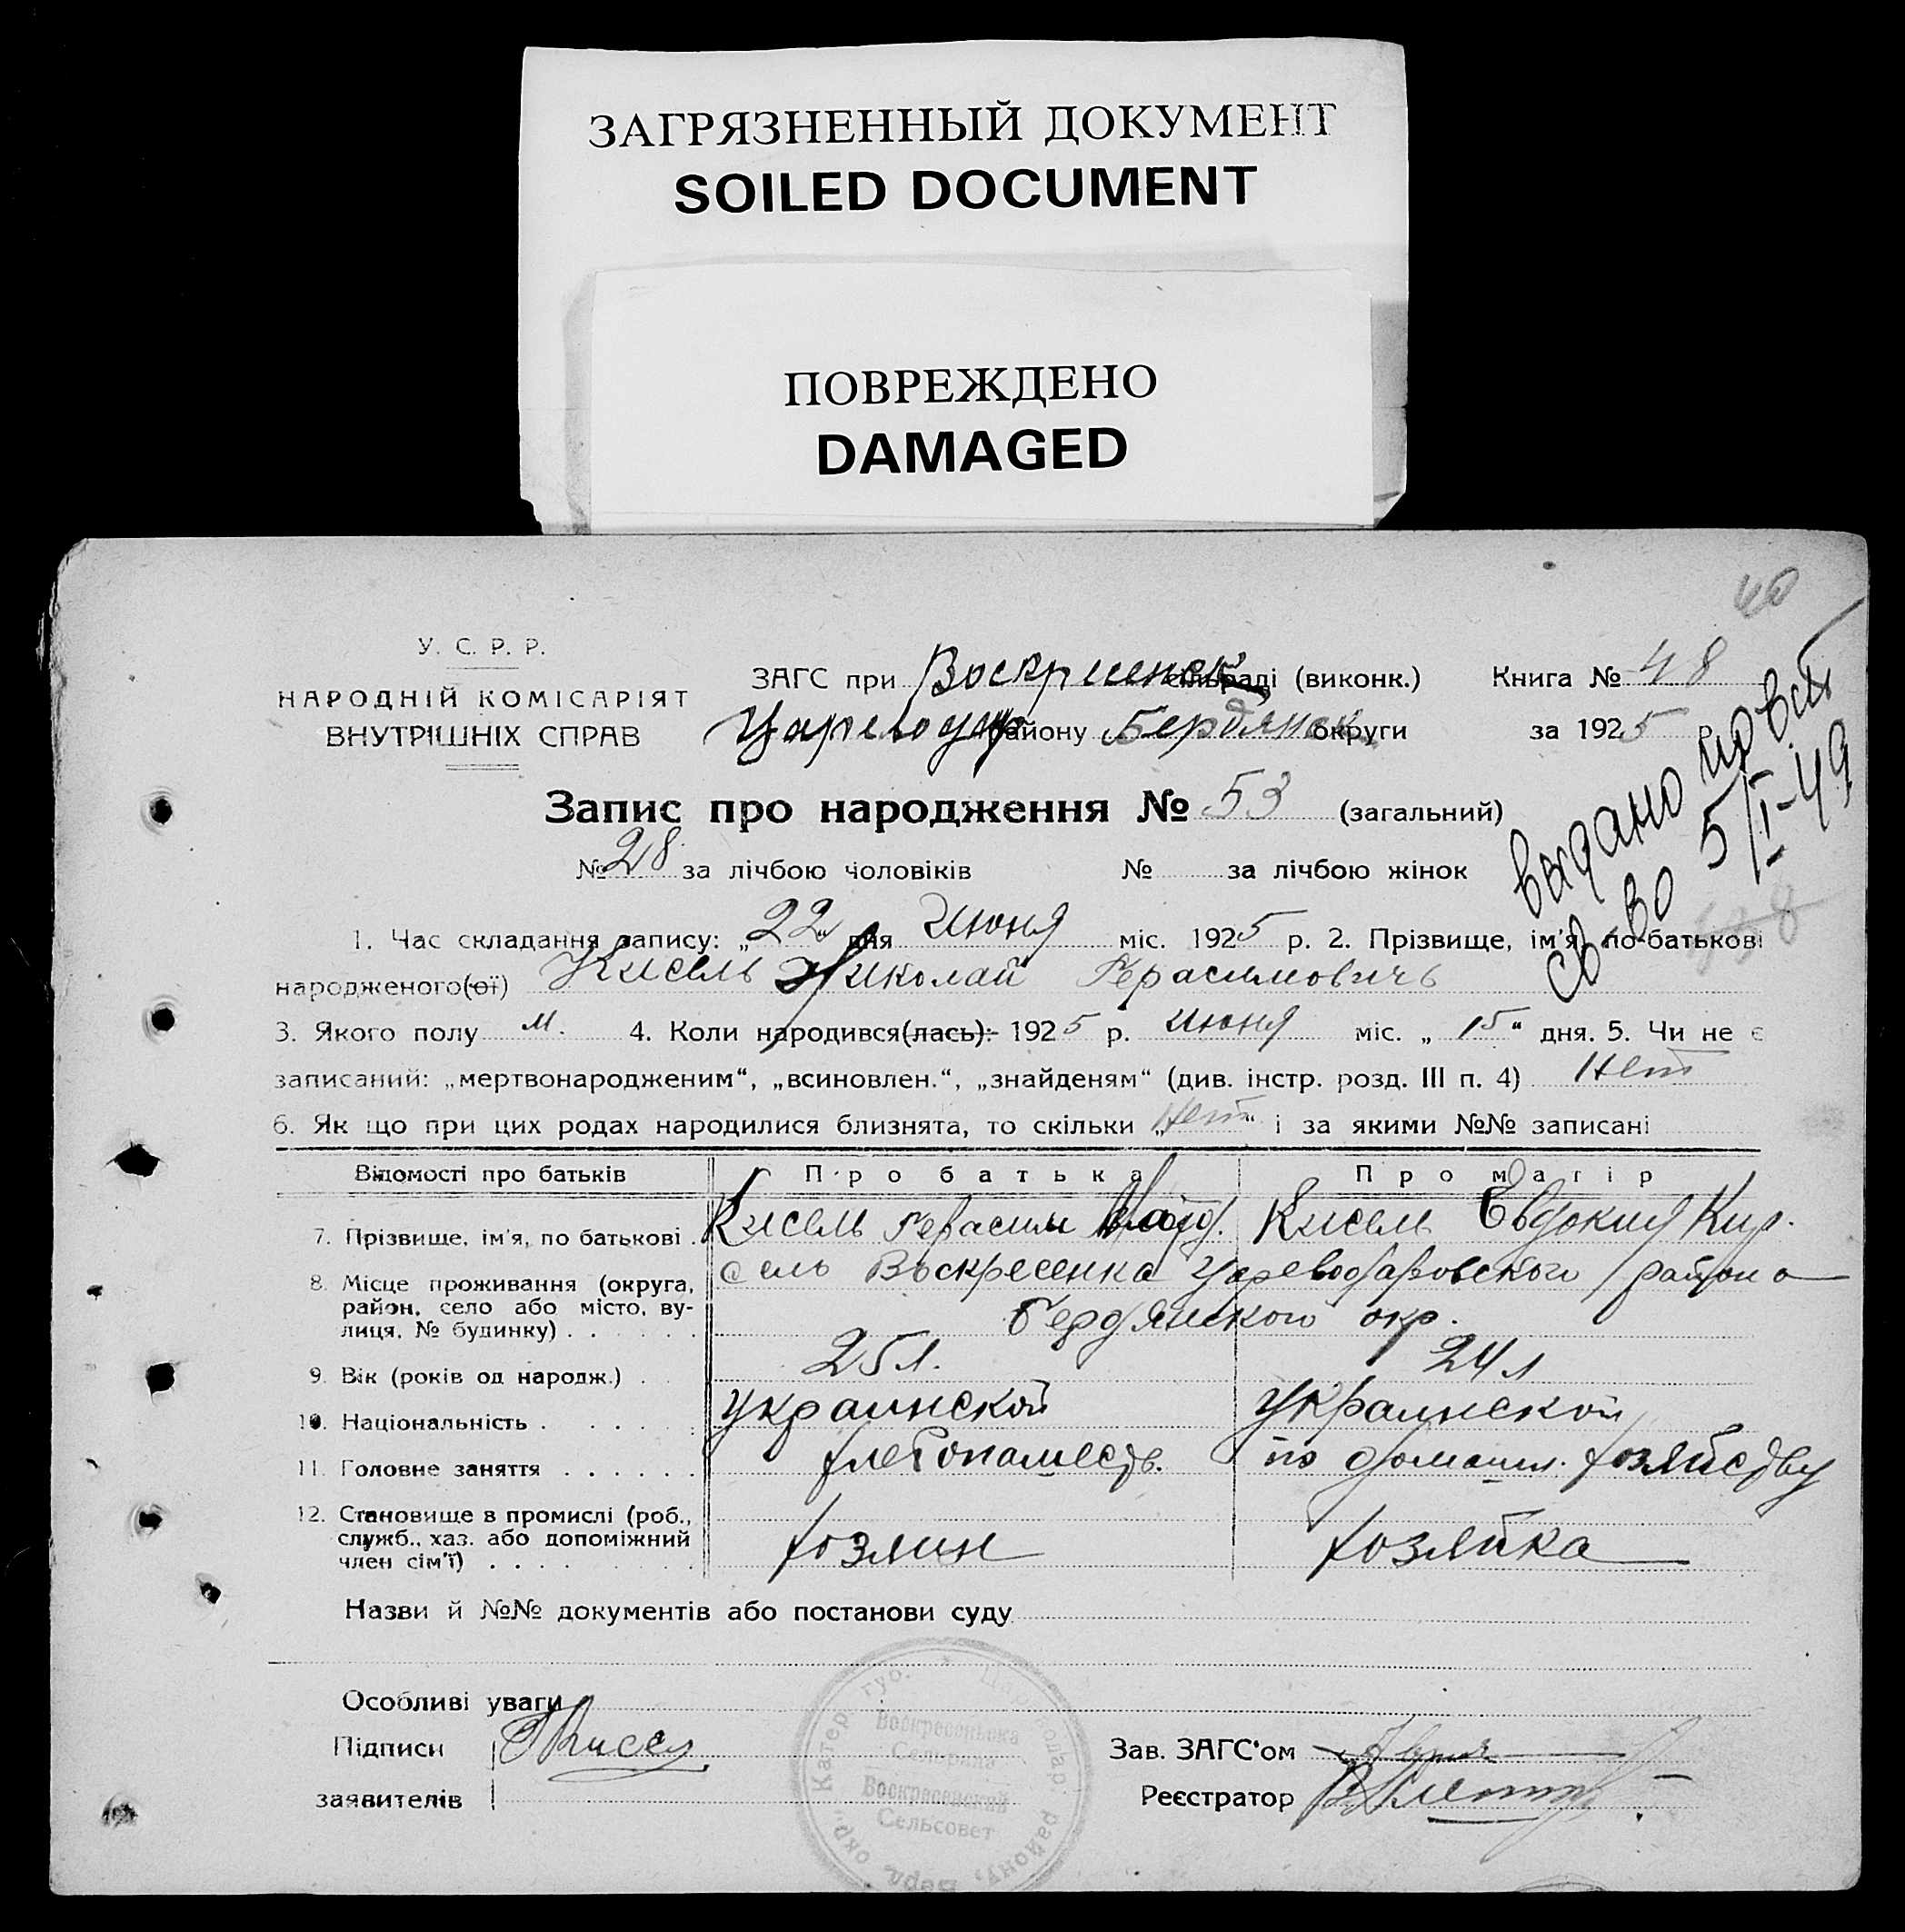 ЗАГРЯЗНЕННЫЙ ДОКУМЕНТ
SOILED DOCUMENT
ПОВРЕЖДЕНО
DAMAGED
40
У. С. Р. Р.
НАРОДНІЙ КОМІСАРІЯТ
ВНУТРІШНІХ СПРАВ
ЗАГС при Воскресенск сільраді (виконк.) Книга № 48
району Бердянск округи за 1925 р
выдано повт
св-во 5/I-49
Запис про народження № 53 (загальний)
№ 28 за лічбою чоловіків № за лічбою жінок
1. Час складання запису: „22" дня Июня міс. 1925 р. 2. Прізвище, ім'я, по-батькові
народженого(ої) Кисель Николай Герасимовичъ
3. Якого полу м. 4. Коли народився(лась): 1925 р. июня міс. „15" дня. 5. Чи не є
записаний: „мертвонародженим", „всиновлен.", „знайденям" (див. інстр. розд. III п. 4) Нет
6. Як що при цих родах народилися близнята, то скільки „Нет" і за якими №№ записані
Відомості про батьків Про батька Про матір
7. Прізвище, ім'я, по батькові . Кисель Герасим Кисель Евдокия Кир.
8. Місце проживання (округа, село Воскресенка Цареводаровського района
район, село або місто, ву-
лиця, № будинку) . . . . . . Бердянского окр.
9. Вік (років од народж.) . . 25 л. 24 л
10. Національність . . . . . . украинской украинской
11. Головне заняття . . . . . . хлебопашеств. по домашн. хозяйству
12. Становище в промислі (роб.,
служб., хаз. або допоміжний хозяин хозяйка
член сім'ї) . . . . . .
Назви й №№ документів або постанови суду
Особливі уваги
Підписи Зав. ЗАГС'ом
заявителів Реєстратор
Катер. губ. району, Берд. окр.
Воскресенська
Сельрада
Воскресенский
Сельсовет